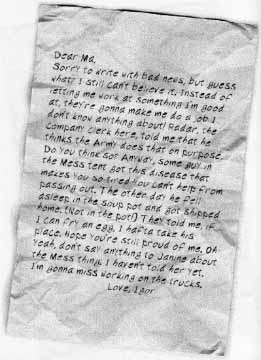 Dear Ma,
Sorry to write with bad news, but guess
what? I still can't believe it. Instead of
letting me work at something I'm good
at, they're gonna make me do a job I
don't know anything about! Radar, the
Company Clerk here, told me that he
thinks the Army does that on purpose.
Do you think so? Anyway, some guy in
the Mess tent got this disease that
makes you so tired you can't help from
passing out. The other day he fell
asleep in the soup pot and got shipped
home. (Not in the pot!) They told me, if
I can fry an egg, I hafta take his
place. Hope you're still proud of me. Oh
yeah, don't say anything to Janine about
the Mess thing. I haven't told her yet.
I'm gonna miss working on the trucks.
Love, Igor